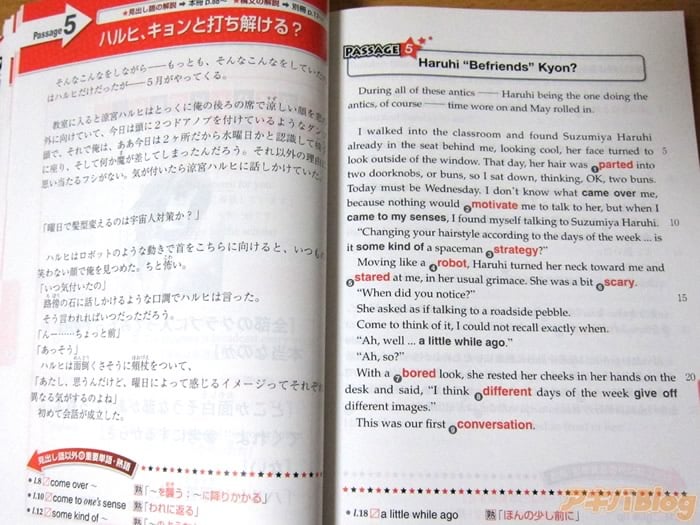 ★見出し語の解説 ➡ 本冊 p.88〜 ★構文の解説 ➡ 別冊 p.1
Passage 5 ハルヒ、キョンと打ち解ける？
そんなこんなをしながら――もっとも、そんなこんなをしていた
はハルヒだけだったが――5月がやってくる。
教室に入ると涼宮ハルヒはとっくに俺の後ろの席で涼しい顔を
外に向けていて、今日は頭に2つドアノブを付けているようなダンゴ
頭で、それで俺は、ああ今日は2ヶ所だから水曜日かと認識して
に座り、そして何か魔が差してしまったんだろう。それ以外の理由に
思い当たるフシがない。気が付いたら涼宮ハルヒに話しかけていた
「曜日で髪型変えるのは宇宙人対策か？」
ハルヒはロボットのような動きで首をこちらに向けると、いつも
笑わない顔で俺を見つめた。ちと怖い。
「いつ気付いたの」
路傍の石に話しかけるような口調でハルヒは言った。
そう言われればいつだっただろう。
「んー……ちょっと前」
「あっそう」
ハルヒは面倒くさそうに頬杖をついて、
「あたし、思うんだけど、曜日によって感じるイメージってそれぞれ
異なる気がするのよね」
初めて会話が成立した。
見出し語以外の重要単語・熟語
l.8 come over ～ 熟「～を襲う；～に降りかかる」
l.10 come to one's sense 熟「われに返る」
l.12 some kind of ～
PASSAGE 5
Haruhi “Befriends” Kyon?
During all of these antics —— Haruhi being the one doing the
antics, of course —— time wore on and May rolled in.
I walked into the classroom and found Suzumiya Haruhi
already in the seat behind me, looking cool, her face turned to 5
look outside of the window. That day, her hair was ❶parted into
two doorknobs, or buns, so I sat down, thinking, OK, two buns.
Today must be Wednesday. I don't know what came over me,
because nothing would ❷motivate me to talk to her, but when I
came to my senses, I found myself talking to Suzumiya Haruhi. 10
“Changing your hairstyle according to the days of the week ... is
it some kind of a spaceman ❸strategy?”
Moving like a ❹robot, Haruhi turned her neck toward me and
❺stared at me, in her usual grimace. She was a bit ❻scary.
“When did you notice?” 15
She asked as if talking to a roadside pebble.
Come to think of it, I could not recall exactly when.
“Ah, well ... a little while ago.”
“Ah, so?”
With a ❼bored look, she rested her cheeks in her hands on the 20
desk and said, “I think ❽different days of the week give off
different images.”
This was our first ❾conversation.
l.18 a little while ago 熟「ほんの少し前に」
アキバBlog